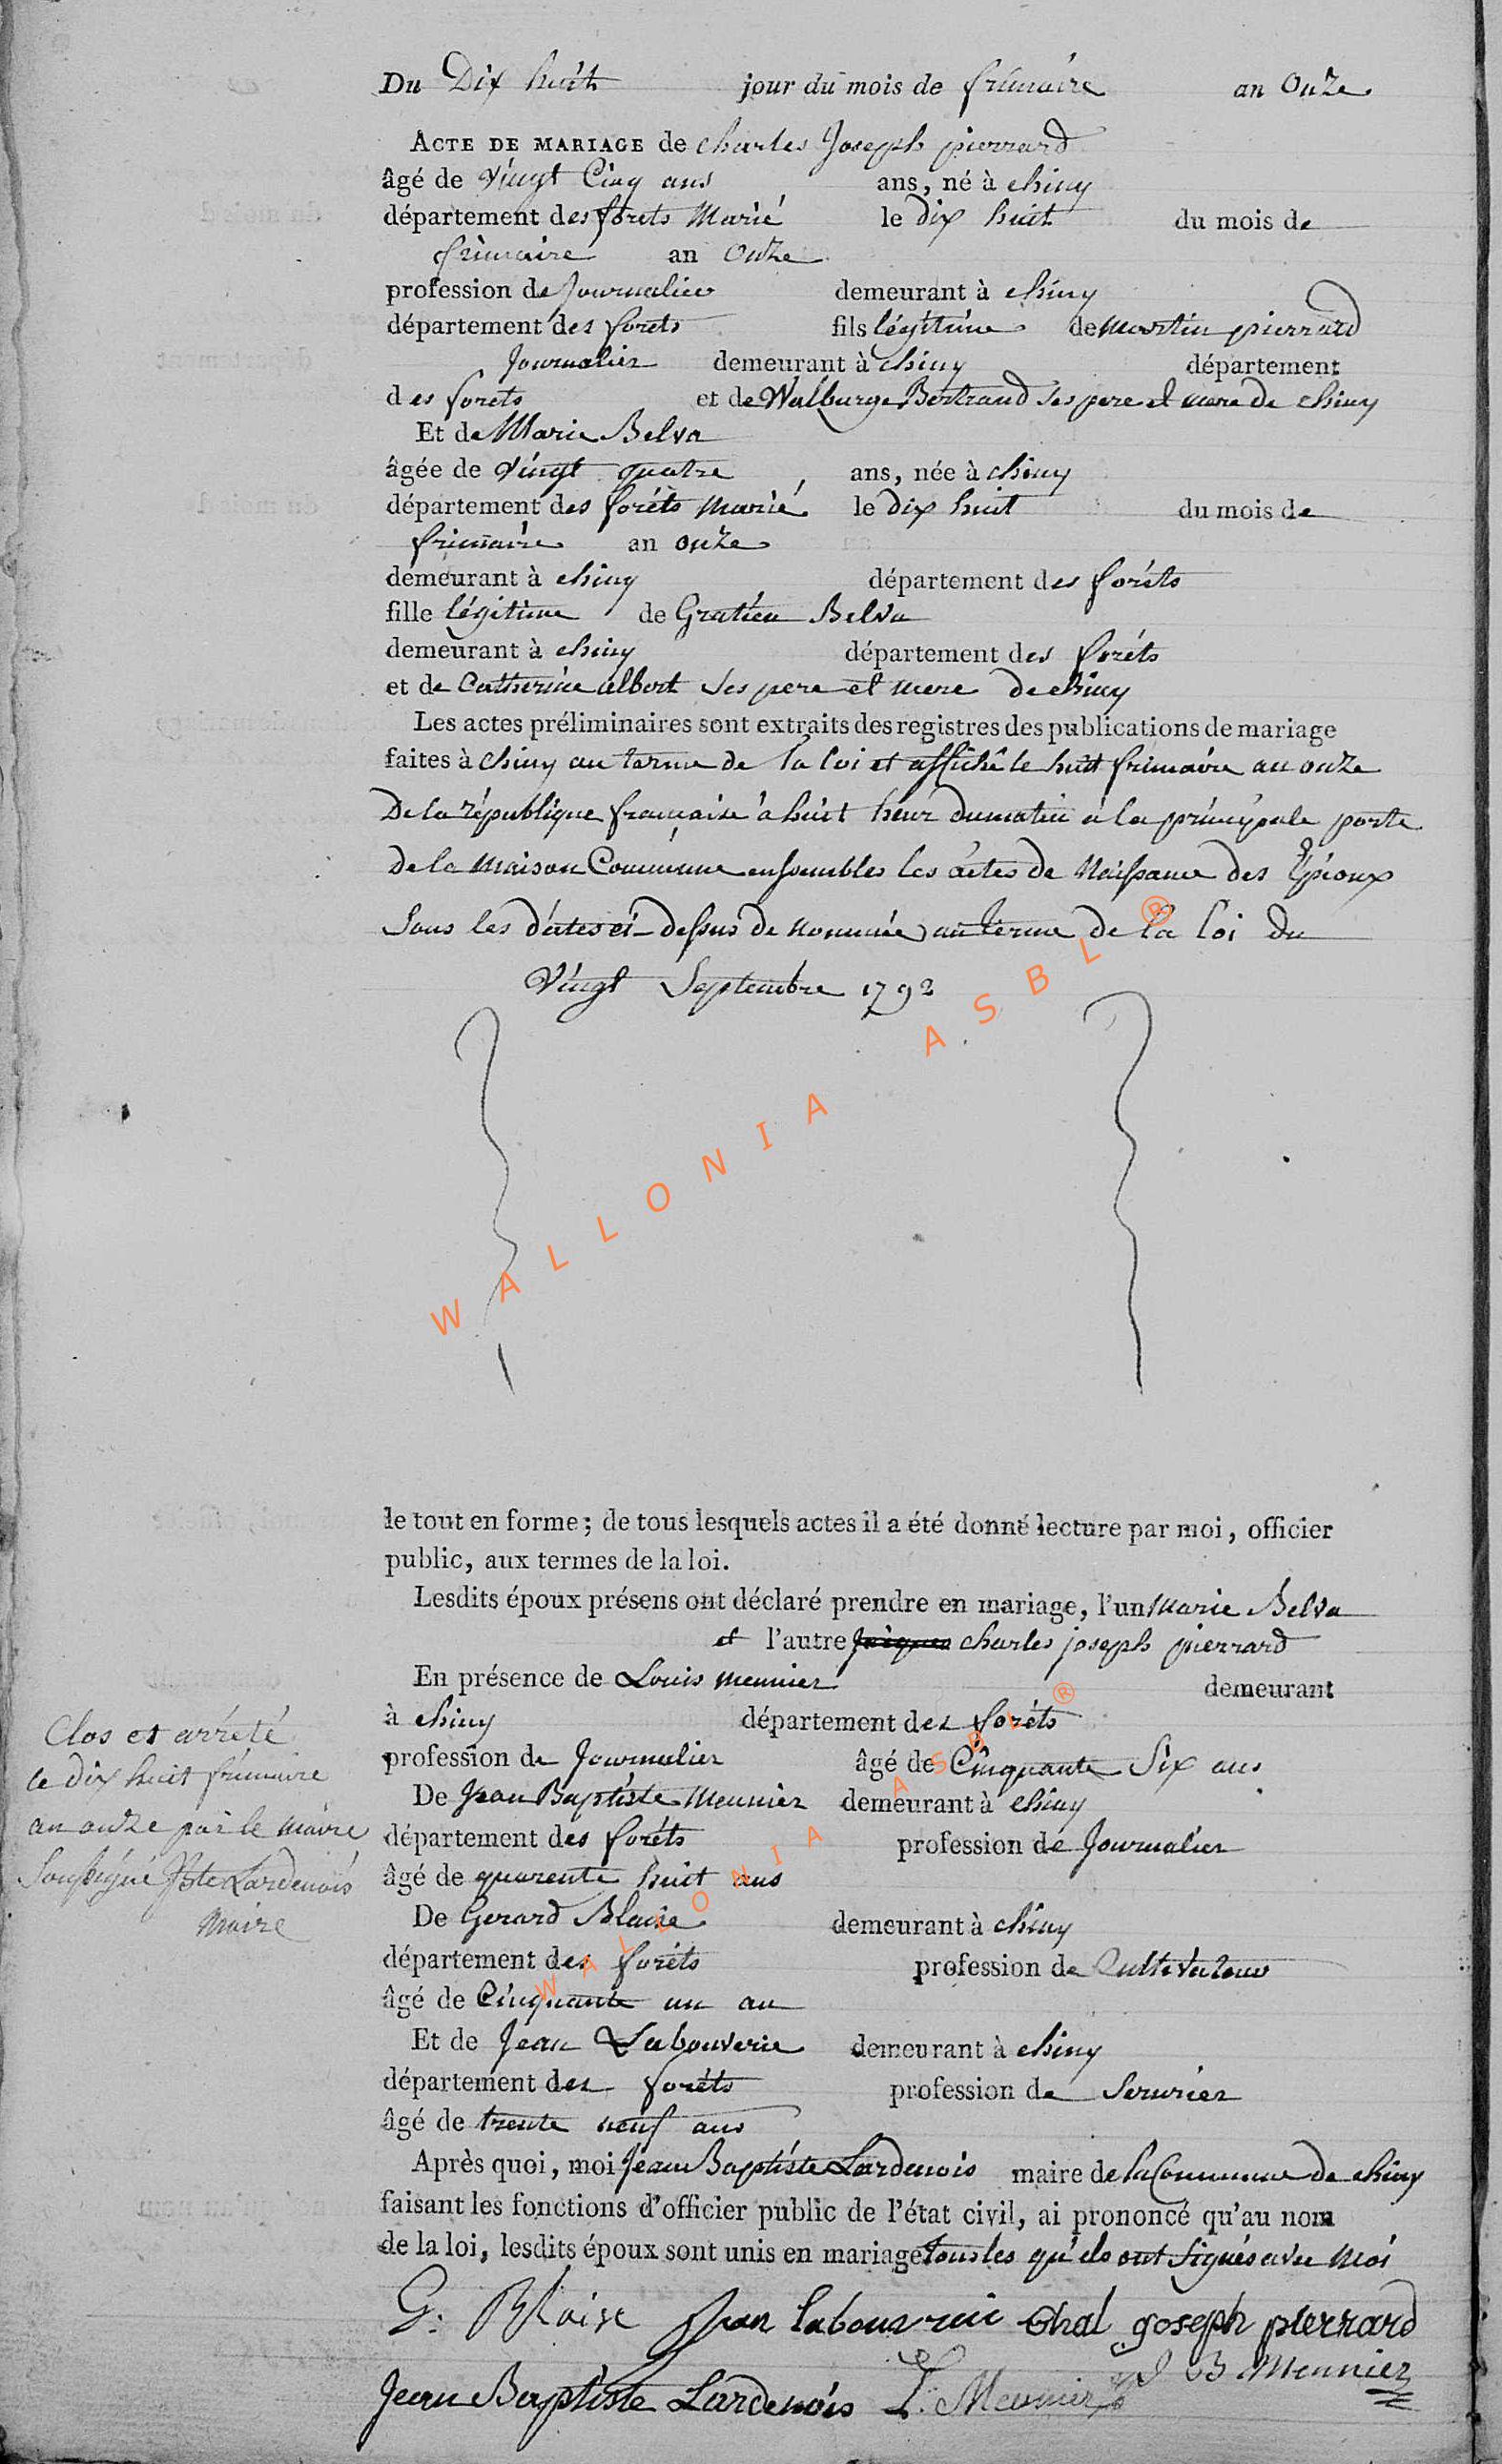 Du Dix huit jour du mois de frimaire an onze
ACTE DE MARIAGE de charles Joseph pierrard
âgé de vingt Cinq ans ans, né à chiny
département des forets Marié le dix huit du mois de
frimaire an onze
profession de Journalier demeurant à chiny
département des forets fils légitime de martin pierrard
Journalier demeurant à chiny département
des forets et de Walburge Bertrand ses pere et mere de chiny
Et de Marie Belva
âgée de vingt quatre ans, née à chiny
département des foréts marié le dix huit du mois de
frimaire an onze
demeurant à chiny département des foréts
fille légitime de Gratien Belva
demeurant à chiny département des foréts
et de Catherine albert ses pere et mere de chiny
Les actes préliminaires sont extraits des registres des publications de mariage
faites à chiny au terme de la loi et affiché le huit frimaire an onze
De la république francaise à huit heur du matin a la principale porte
de la Maison Commune enssembles les actes de Naissance des Epioux
Sous les dates ci-dessus de nommée au terme de la loi du
vingt Septembre 1792
WALLONIA ASBL ®
le tout en forme; de tous lesquels actes il a été donné lecture par moi, officier
public, aux termes de la loi.
Lesdits époux présens ont déclaré prendre en mariage, l'un Marie Belva
et l'autre charles joseph pierrard
En présence de Louis meunier demeurant
à chiny département des foréts
profession de Journalier âgé de Cinquante Six ans
De Jean Baptiste Meunier demeurant à chiny
département des foréts profession de Journalier
âgé de quarente huit ans
De Gerard Blaise demeurant à chiny
département des foréts profession de Cultivateur
âgé de Cinquante un an
Et de Jean Labouverie demeurant à chiny
département des foréts profession de Serurier
âgé de trente neuf ans
Après quoi, moi Jean Baptiste Lardenois maire de la Commune de chiny
faisant les fonctions d'officier public de l'état civil, ai prononcé qu'au nom
de la loi, lesdits époux sont unis en mariage tous les qu'els ont signés avec moi
Clos et arrété
le dix huit frimaire
an onze par le maire
Soussigné Jbte Lardenois
Maire
WALLONIA ASBL ®
G. Blaise Jean labouverie Chal joseph pierrard
Jean Baptiste Lardenois L. Meunier J B Meunier